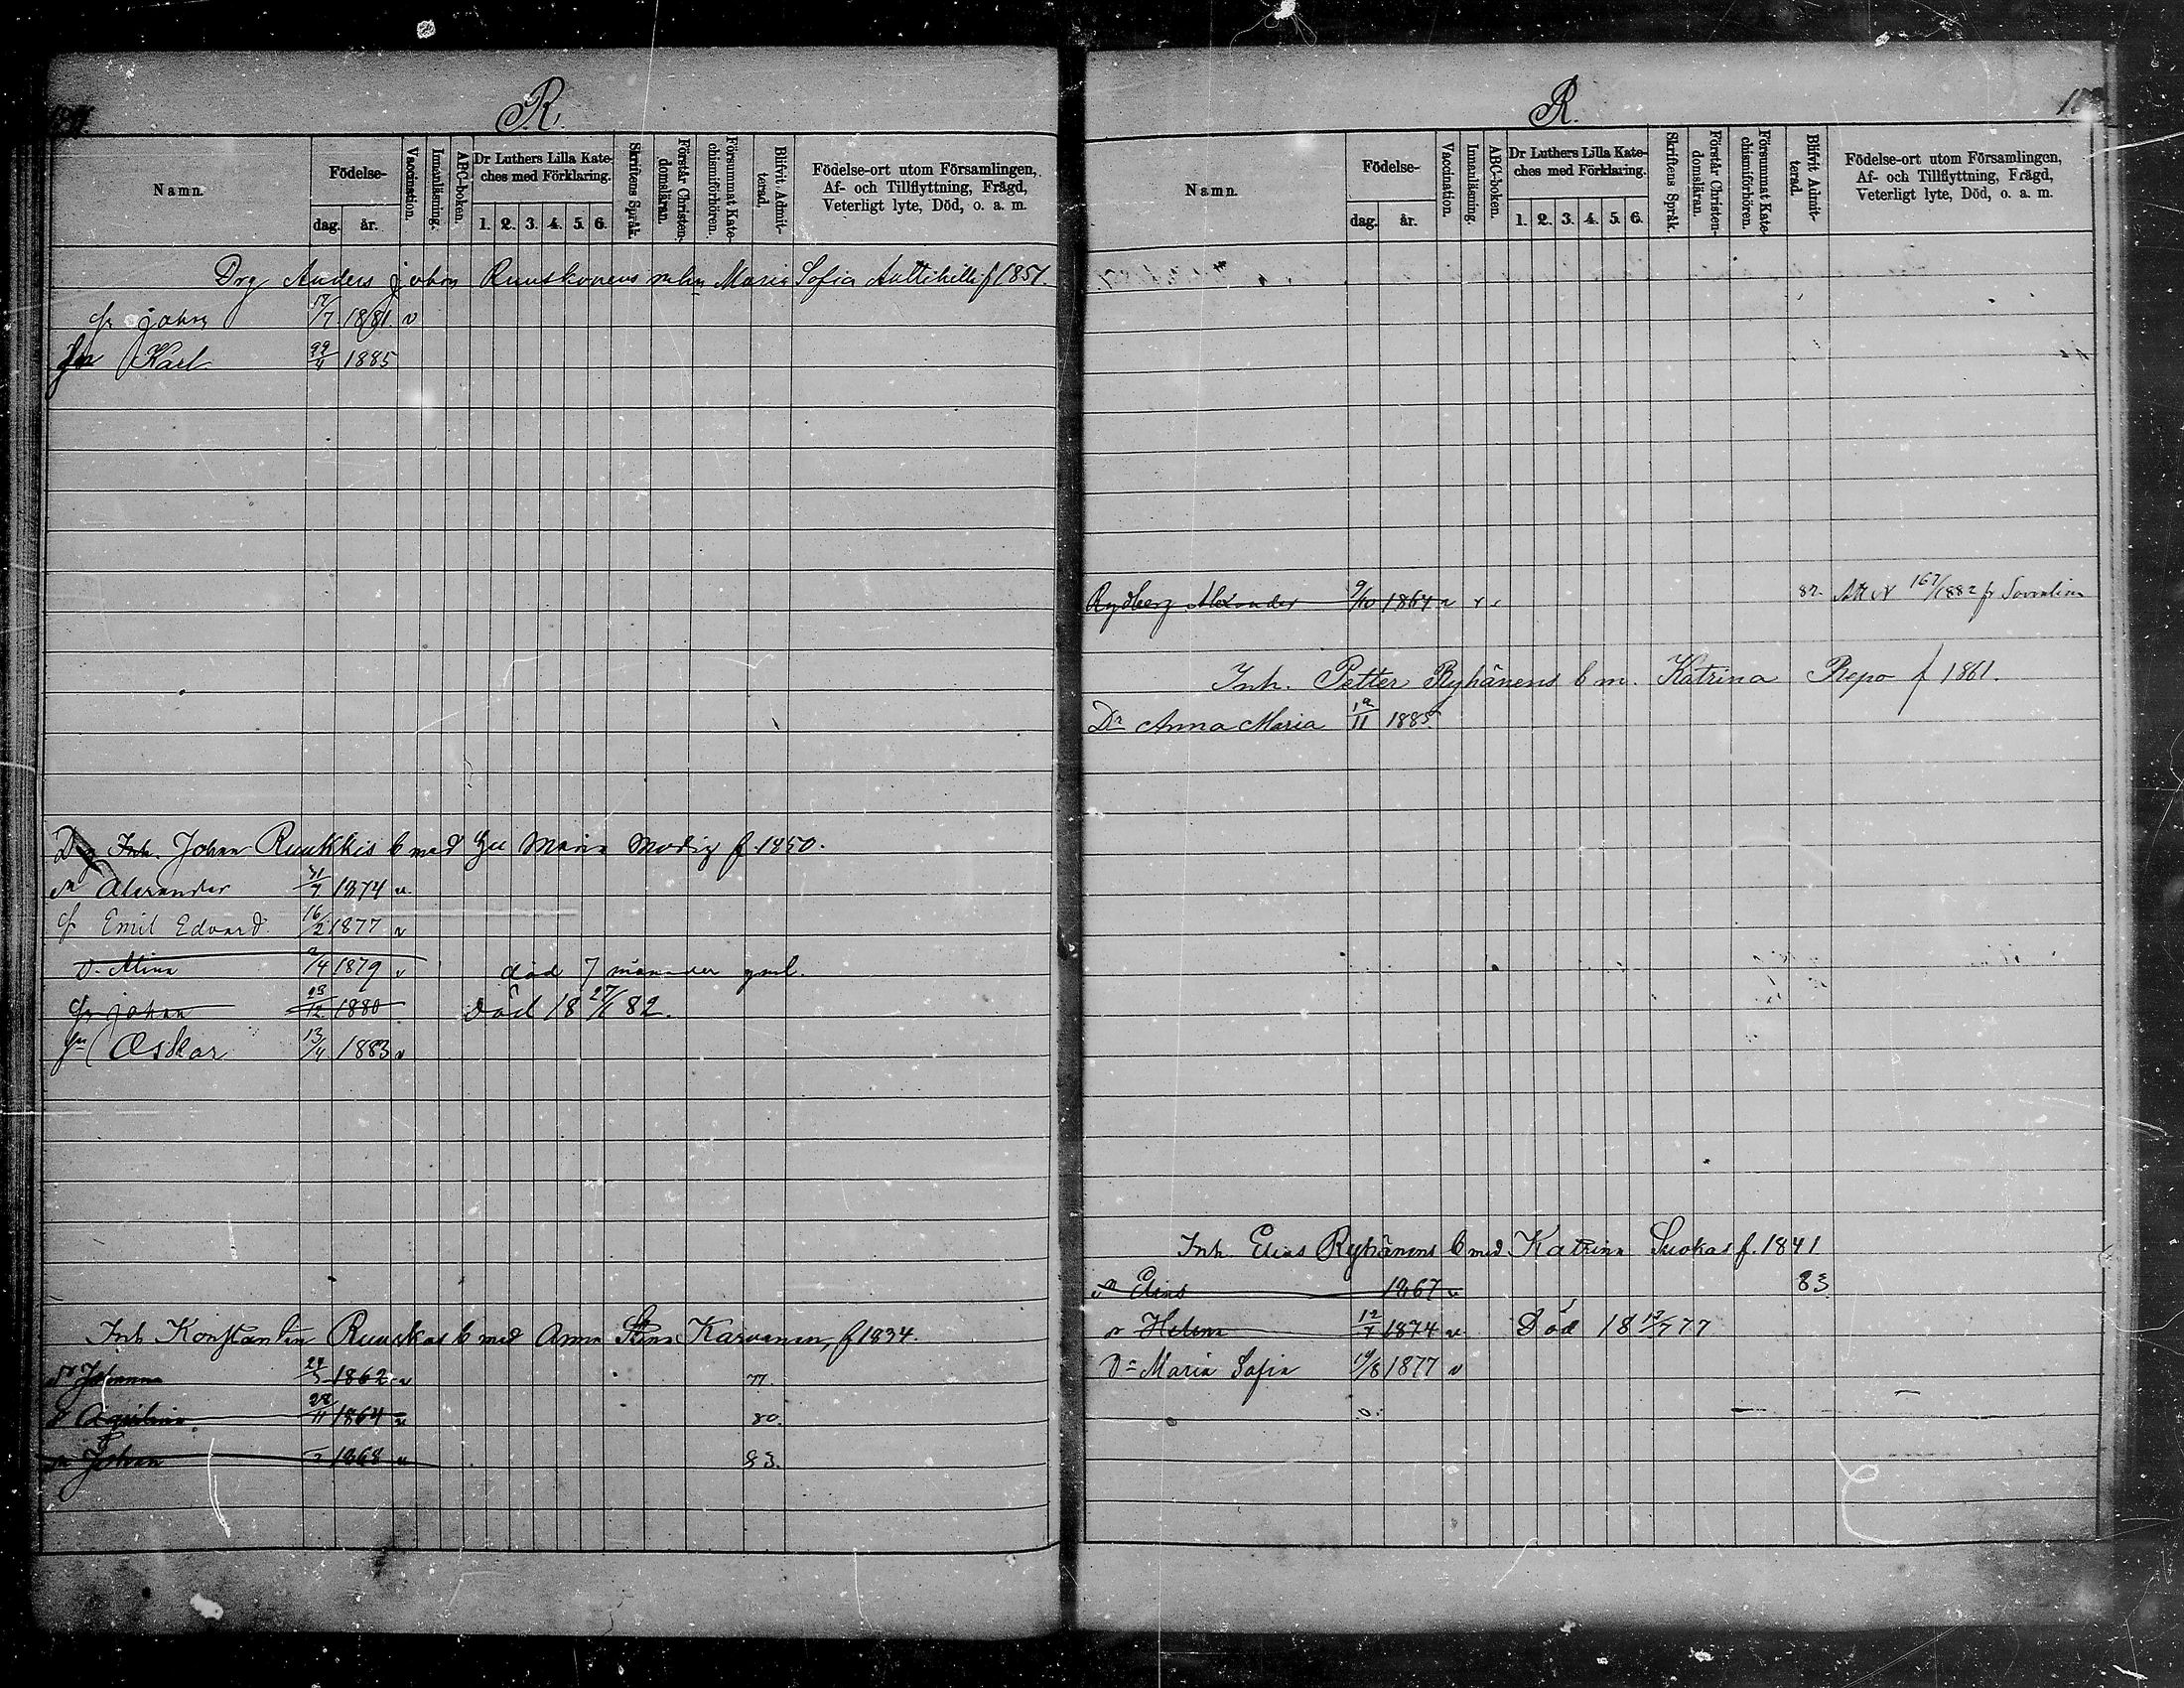 R.
Namn.
Födelse-
dag.
år.
Vaccination.
Innanläsning.
ABC-boken.
Dr Luthers Lilla Kate-
ches med Förklaring.
1. 2. 3. 4. 5. 6.
Skriftens Språk.
Förstår Christen-
domsläran.
Försummat Kate-
chismiförhören.
Blifvit Admit-
terad.
Födelse-ort utom Församlingen,
Af- och Tillflyttning, Frägd,
Veterligt lyte, Död, o. a. m.
Drg Anders Johan Ruuskonens Maria Sofia f 1851.
Johan 17/7 1881. v
Karl 1885
Inh. Johan Ruukkis b med Maria Modig f. 1850.
Alexander 31/7 1874 v
Emil Edvard 16/2 1877 v
D. Mina 2/4 1879 v död 7 månader gml.
Johan 1880 Död 18 27/ 82.
Oskar 13/4 1883 v
Inh Konstantin Ruuskas b med Anna Stina Karvanen, f 1834.
Johanna 1862 v 77.
Aqvilina 28/11 1864 v 80.
Johan 1868 v 83.
R.
Namn.
Födelse-
dag.
år.
Vaccination.
Innanläsning.
ABC-boken.
Dr Luthers Lilla Kate-
ches med Förklaring.
1. 2. 3. 4. 5. 6.
Skriftens Språk.
Förstår Christen-
domsläran.
Försummat Kate-
chismiförhören.
Blifvit Admit-
terad.
Födelse-ort utom Församlingen,
Af- och Tillflyttning, Frägd,
Veterligt lyte, Död, o. a. m.
Rydberg Alexander 9/10 1864 v 82. Att N 167/1882 fr
Inh. Petter Ryhänens b m. Katrina Repo f 1861.
Dr Anna Maria 12/11 1885
Inh. Elias Ryhänens b med Katrina Suokas f. 1841
Elias 1867 v 83
Helena 12/7 1874 v Död 18 77
Dr Maria Sofia 19/8 1877 v